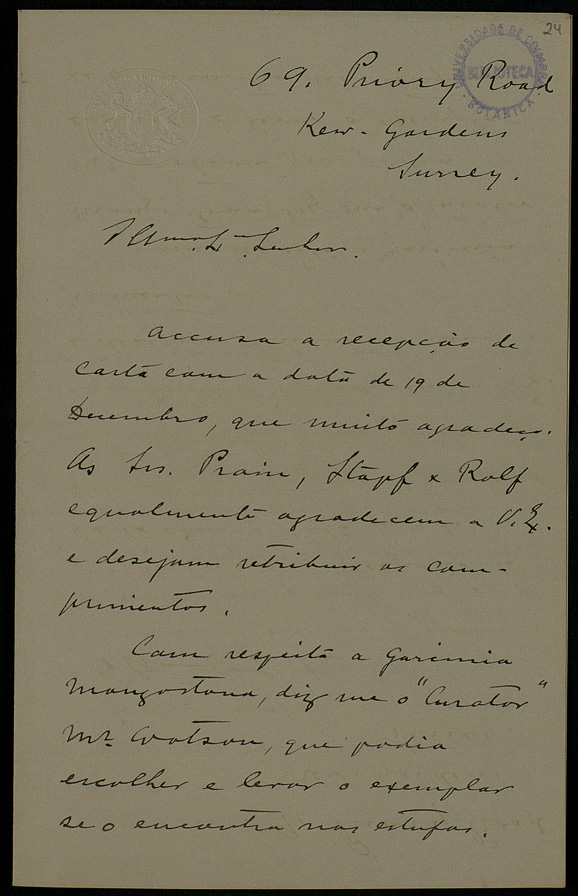 24
UNIVERSIDADE DE COIMBRA
BIBLIOTECA
BOTANICA
69. Priory Road
Kew-Gardens
Surrey.
Illmo. Sr. Senhor.
accusa a recepção de
carta com a data de 19 de
Dezembro, que muito agradeço.
As Srs. Prain, Stapf & Rolf
egualmente agradecem a V. Ex.
e desejam retribuir os com-
primentos.
Com respeito a Garcinia
Mangostana, diz me o "Curator"
Mr. Watson, que podia
escolher e levar o exemplar
se o encontra nas estufas.